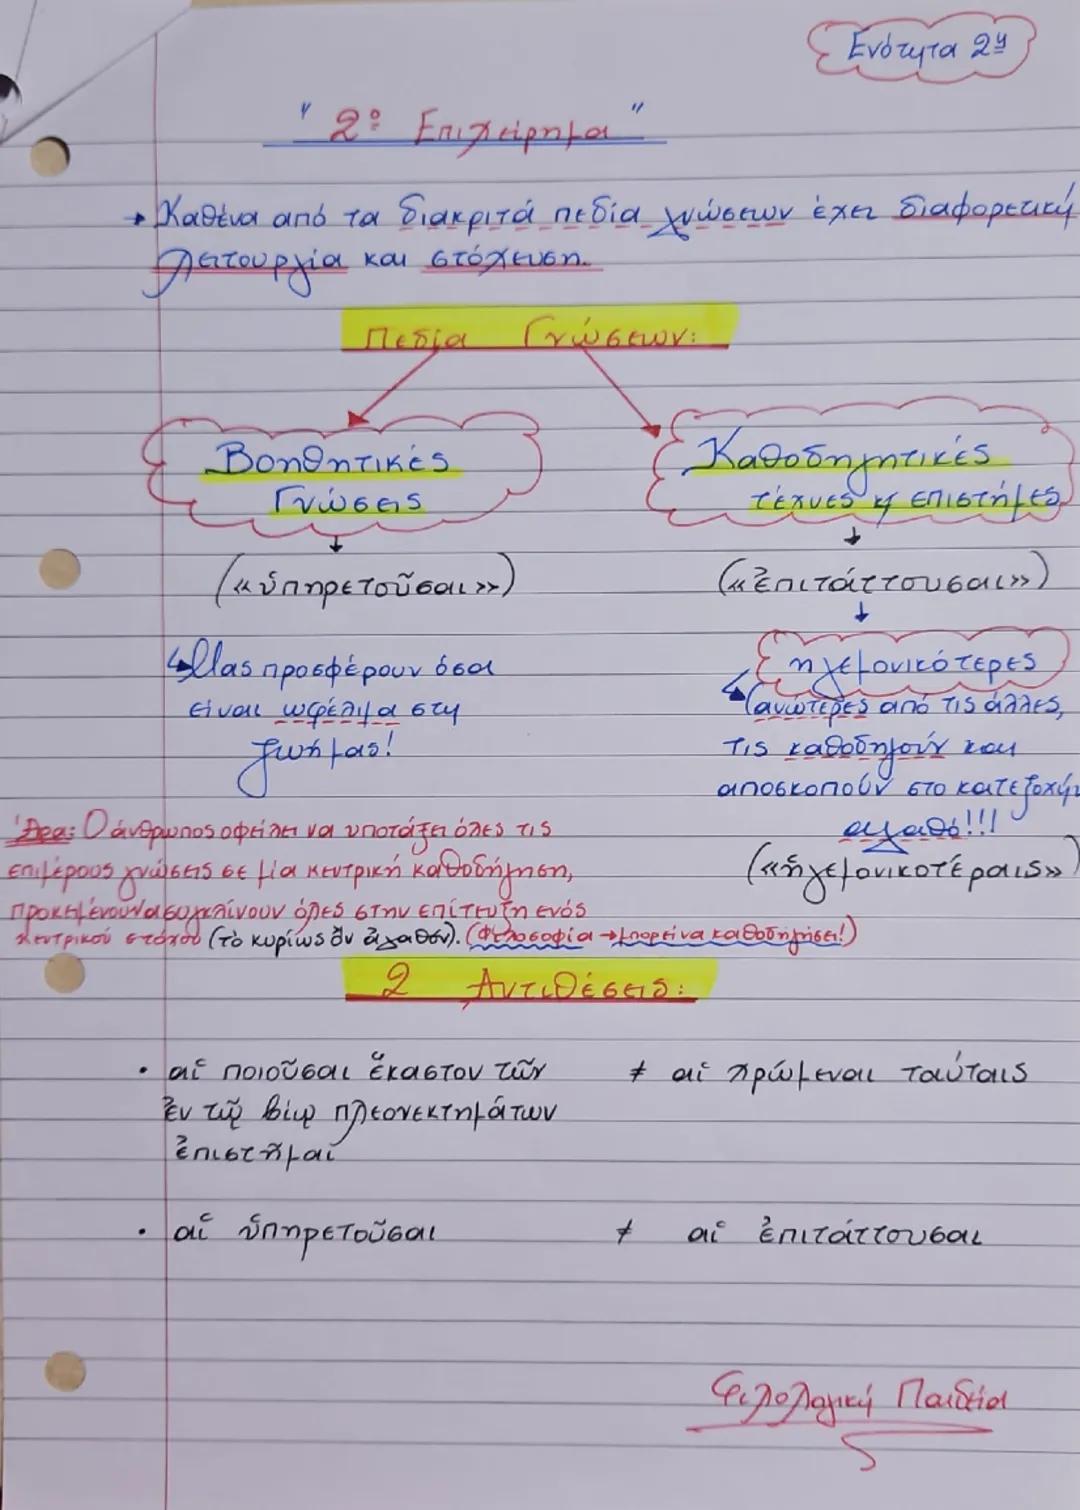 Ενότητα 2η
"2ο Επιχείρημα"
→ Καθένα από τα διακριτά πεδία γνώσεων έχει διαφορετική
λειτουργία και στόχευση.
Πεδία Γνώσεων:
Βοηθητικές
Γνώσεις
Καθοδηγητικές
τέχνες ή επιστήμες
(«ὑπηρετοῦσαι»)
(«ἐπιτάττουσαι»)
Μας προσφέρουν όσα
είναι ωφέλιμα στη
ζωή μας!
ηγεμονικότερες
(ανώτερες από τις άλλες,
τις καθοδηγούν και
αποσκοπούν στο κατεξοχήν
αγαθό!!!
(«ἡγεμονικοτέραις»)
Άρα: Ο άνθρωπος οφείλει να υποτάξει όλες τις
επιμέρους γνώσεις σε μία κεντρική καθοδήγηση,
προκειμένου να συγκλίνουν όλες στην επίτευξη ενός
κεντρικού στόχου (τὸ κυρίως ὂν ἀγαθόν). (Φιλοσοφία → μπορεί να καθοδηγήσει!)
2 Αντιθέσεις:
• αἱ ποιοῦσαι ἕκαστον τῶν ≠ αἱ χρώμεναι ταύταις
ἐν τῷ βίῳ πλεονεκτημάτων
ἐπιστῆμαι
• αἱ ὑπηρετοῦσαι ≠ αἱ ἐπιτάττουσαι
Φιλολογική Παιδεία